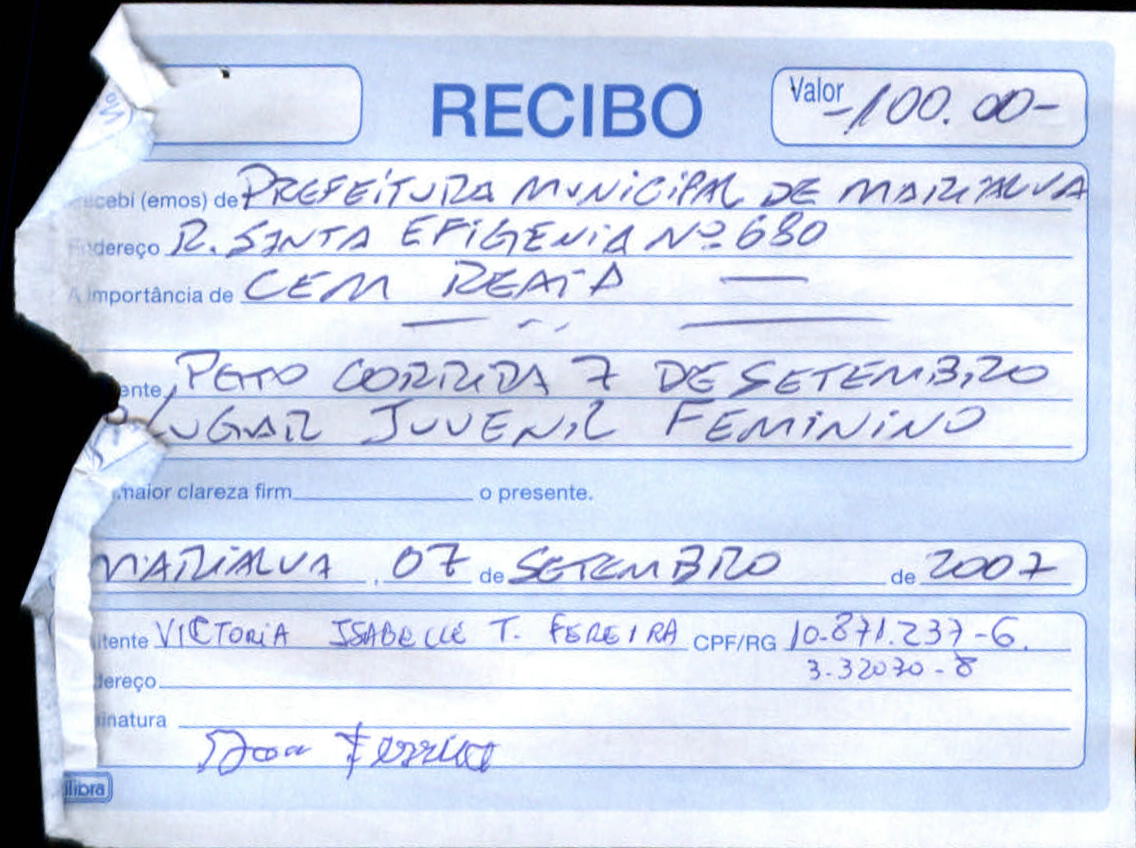 RECIBO
Valor -100.00-
ecebi (emos) de PREFEITURA MUNICIPAL DE MARIALVA
ndereço R. SANTA EFIGENIA Nº 680
A importância de CEM REAIS
ente PETO CORRIDA 7 DE SETEMBRO
LUGAR JUVENIL FEMININO
maior clareza firm__________ o presente.
MARIALVA, 07 de SETEMBRO de 2007
itente VICTORIA ISABELLE T. FEREIRA CPF/RG 10.871.237-6.
3.32030-8
dereço
inatura
Ferreira
tilibra